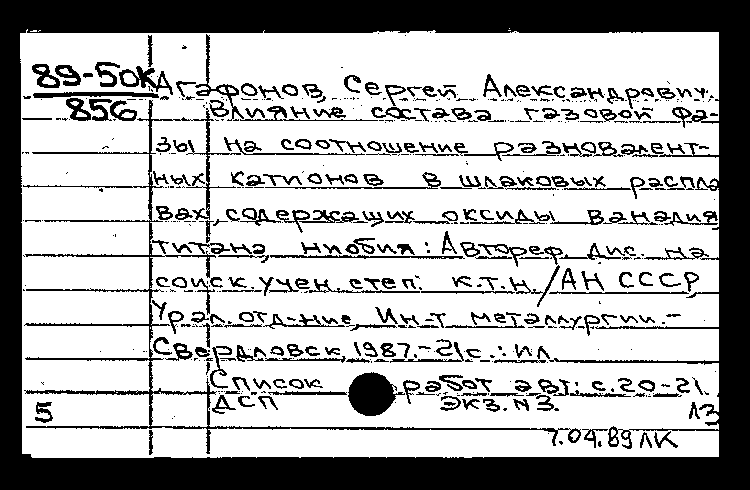 89-50К Агафонов, Сергей Александрович.
856 Влияние состава газовой фа-
зы на соотношение разновалент-
ных катионов в шлаковых распла
вах, содержащих оксиды ванадия,
титана, ниобия: Автореф. дис. на
соиск. учен. степ: к.т.н. / АН СССР,
Урал. отд-ние, Ин-т металлургии.-
Свердловск, 1987.-21с.: ил.
Список работ авт: с.20-21.
5 ДСП экз. N3.
7.04.89 ЛК